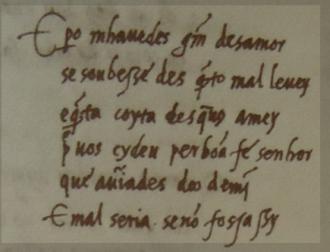 E po mhauedes grã desamor
se soubessedes q̃to mal leuey
e q̃ta coyta des q̃ uos amey
p̃ uos cydeu per bõa fe senhor
que auiades doo de mĩ
E mal seria senõ fossassy